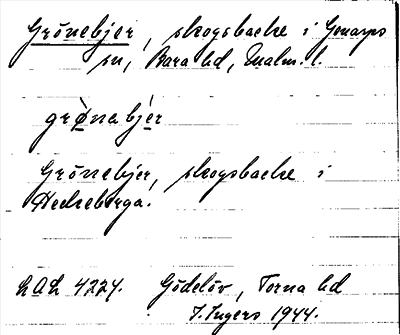 Grönebjer, skogsbacke i Genarps
sn, Bara hd, Malm. l.
grønabjer
Grönebjer, skogsbacke i
Heckeberga.
LAL 4224. Gödelöv, Torna hd
I. Ingers 1944.